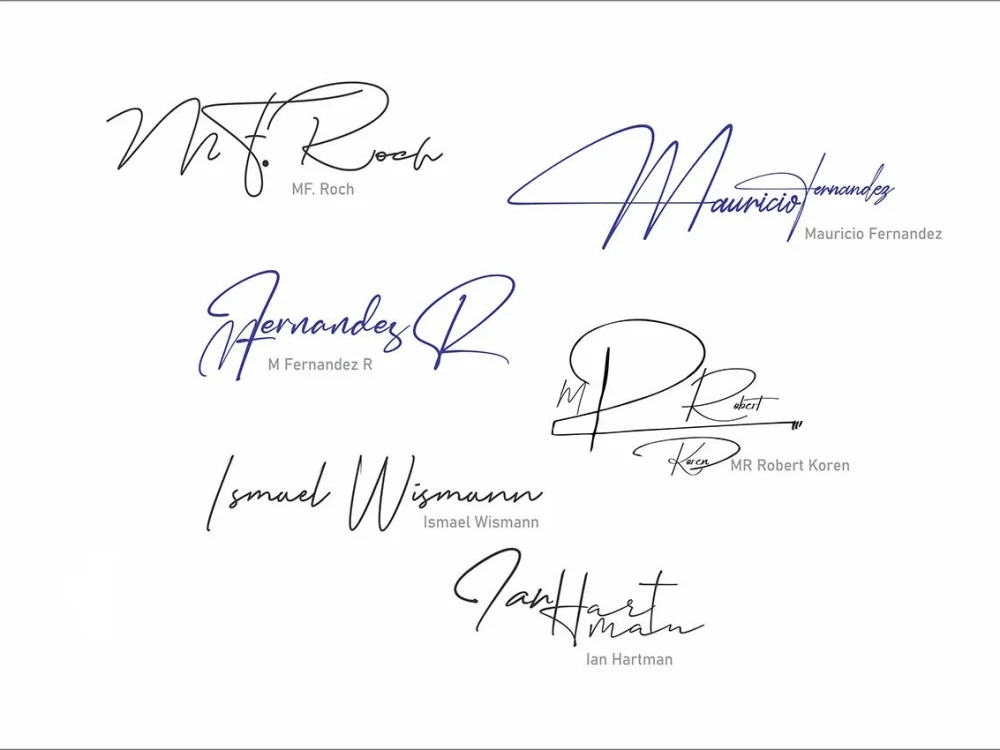 MF. Roch
MF. Roch
Mauricio Fernandez
Mauricio Fernandez
M Fernandez R
M Fernandez R
M R Robert
Koren
MR Robert Koren
Ismael Wismann
Ismael Wismann
Ian Hart
man
Ian Hartman